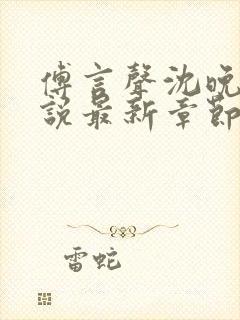 傅言聲沈晚
說最新章節
雷蛇